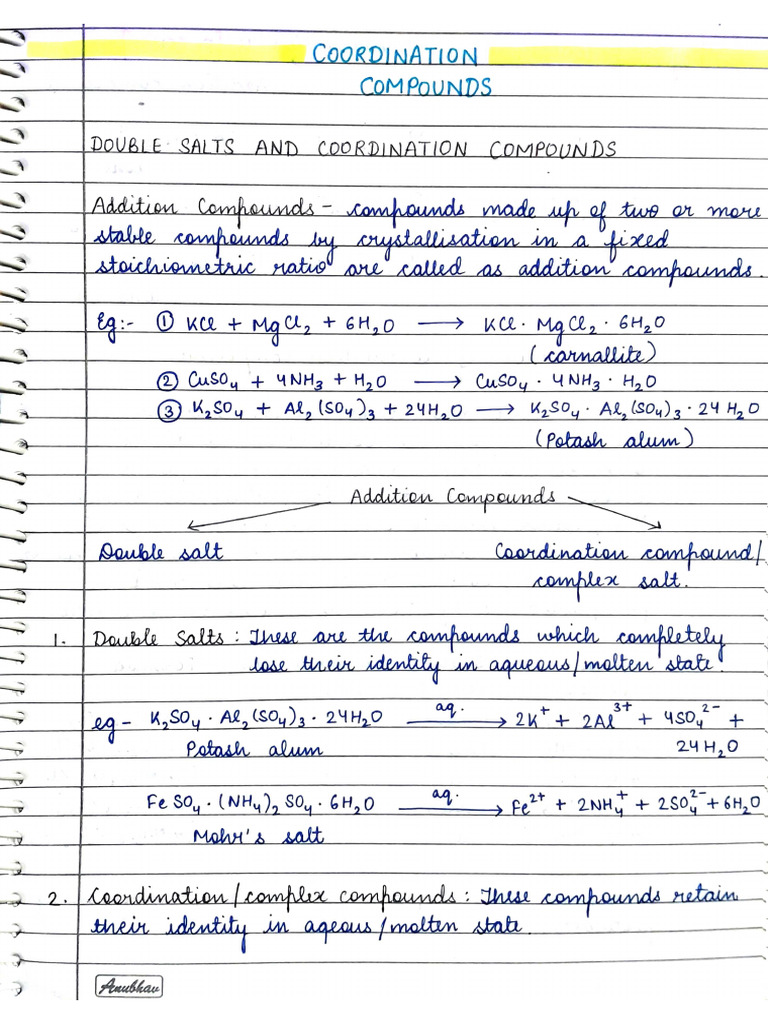 COORDINATION
COMPOUNDS
DOUBLE SALTS AND COORDINATION COMPOUNDS
Addition Compounds - compounds made up of two or more
stable compounds by crystallisation in a fixed
stoichiometric ratio are called as addition compounds.
Eg:- ① KCl + MgCl₂ + 6H₂O ⟶ KCl · MgCl₂ · 6H₂O
(carnallite)
② CuSO₄ + 4NH₃ + H₂O ⟶ CuSO₄ · 4NH₃ · H₂O
③ K₂SO₄ + Al₂(SO₄)₃ + 24H₂O ⟶ K₂SO₄ · Al₂(SO₄)₃ · 24H₂O
(Potash alum)
Addition Compounds
Double salt Coordination compound/
complex salt.
1. Double Salts : These are the compounds which completely
lose their identity in aqueous/molten state.
eg - K₂SO₄ · Al₂(SO₄)₃ · 24H₂O aq. ⟶ 2K⁺ + 2Al³⁺ + 4SO₄²⁻ +
Potash alum 24H₂O
FeSO₄ · (NH₄)₂SO₄ · 6H₂O aq. ⟶ Fe²⁺ + 2NH₄⁺ + 2SO₄²⁻ + 6H₂O
Mohr's salt
2. Coordination/complex compounds : These compounds retain
their identity in aqeous/molten state.
Anubhav